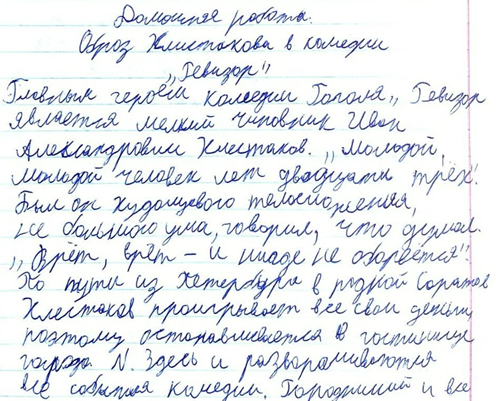 Домашняя работа.
Образ Хлистакова в комедии
„Ревизор"
Главным героем комедии Гоголя „Ревизор
является мелкий чиновник Иван
Александрович Хлестаков. „Молодой,
молодой человек лет двадцати трёх.
Был он худощевого телосложения,
не большого ума, говорил, что думал.
„Врёт, врёт – и нигде не оборвётся".
По пути из Петербурга в родной Саратов
Хлестаков проигрывает все свои деньги,
поэтому останавливается в гостинице
города N. Здесь и разворачиваются
все события комедии. Городничий и все